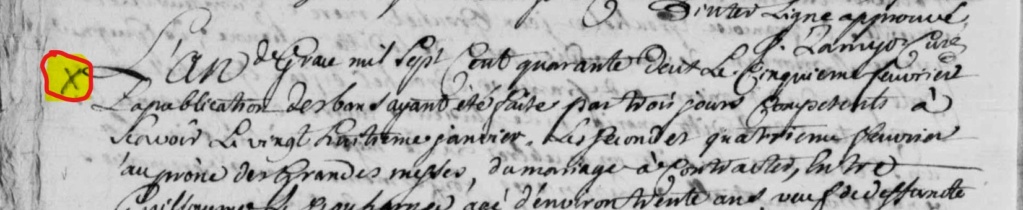 D'inter Ligne approuvé
X L'an de Grace mil Sept Cent quarante deux Le Cinquieme feuvrier
La publication des bans ayant été faite par trois jours Competents à
Scavoir Le vingt huitieme janvier, Les second et quatrieme feuvrier
au prône des Grandes messes, du mariage à Contracter, Entre
Guillaume agé d'environ trente ans veuf de deffuncte